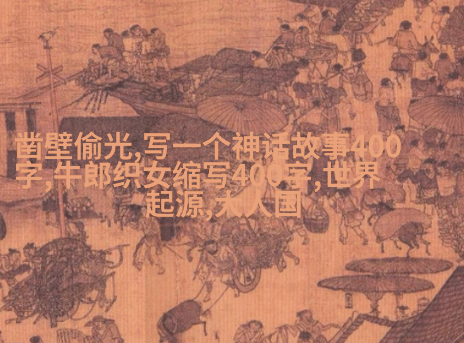 凿壁偷光,写一个神话故事400
字,牛郎织女缩写400字,世界
起源,大人国